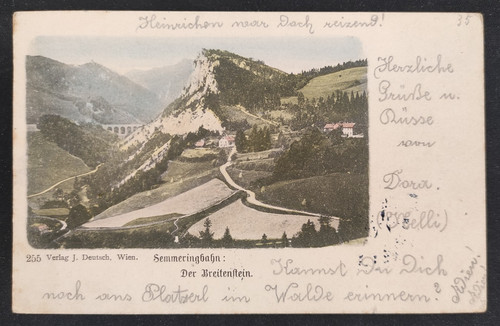 Heinrichen war doch reizend!
35
Herzliche
Grüße u.
Küsse
von
Dora.
255 Verlag J. Deutsch, Wien.
Semmeringbahn:
Der Breitenstein.
Kannst Du Dich
noch ans Platzerl im Walde erinnern?
Wien!